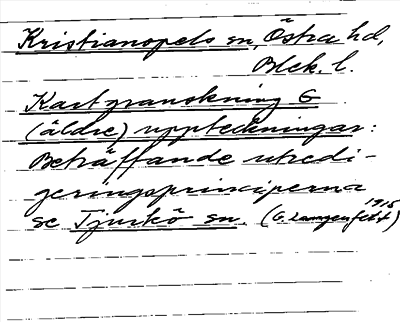 Kristianopels sn, Östra hd,
Blek. l.
Kartgranskning G
(äldre) uppteckningar:
Beträffande utredi-
geringsprinciperna
se Tjurkö sn. (G. Langenfelt)
1915